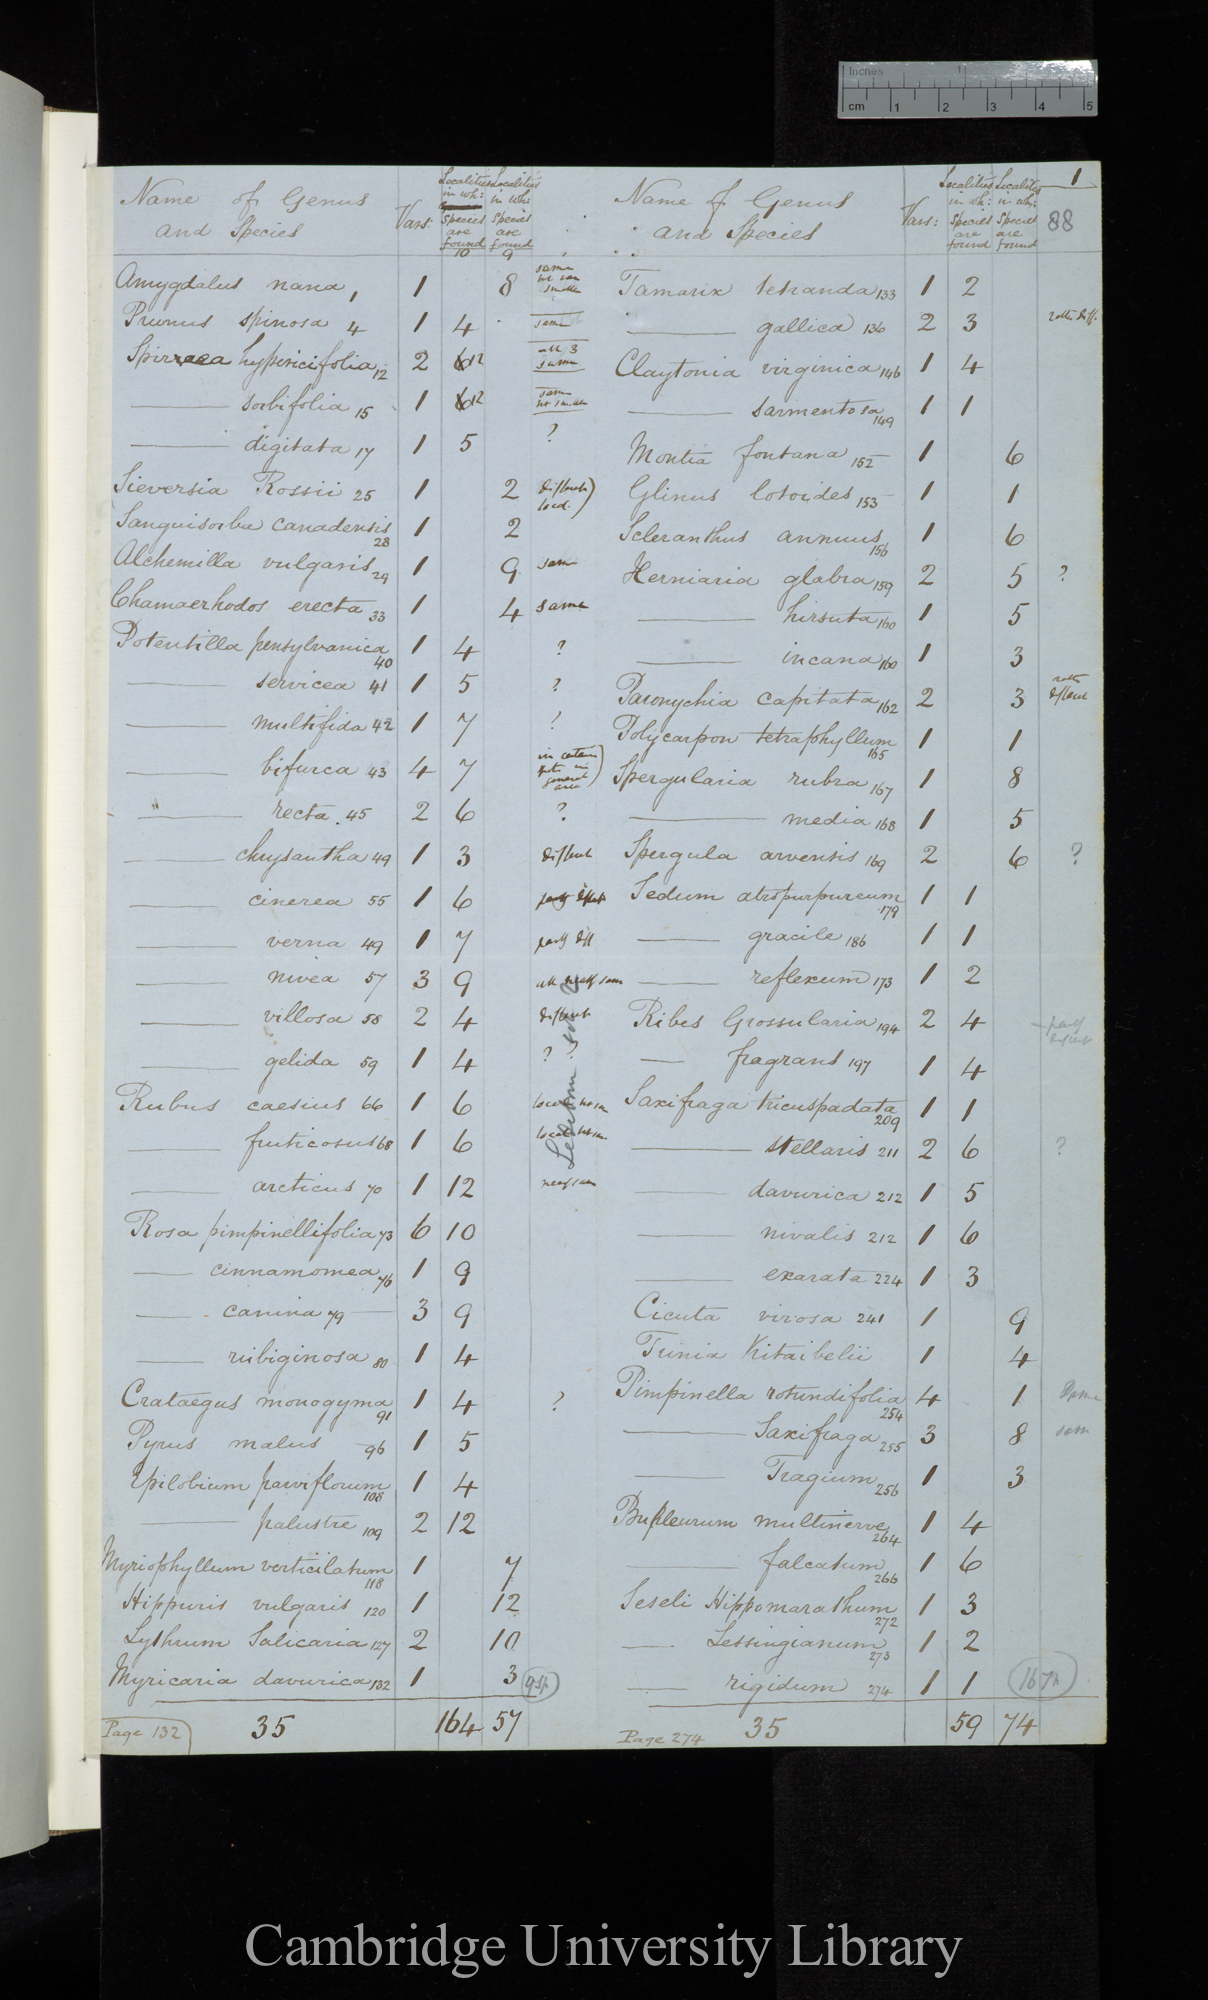 Inches 1
cm 1 2 3 4 5
1
88
Name of Genus and Species
Vars:
Localities in wh: Species are found
Localities in wh: Species are found
10 9
Amygdalus nana 1 1 8 same
Prunus spinosa 4 1 4 same
Spiraea hypericifolia 12 2 12 all 3 same
—— sorbifolia 15 1 12 same
—— digitata 17 1 5 ?
Sieversia Rossii 25 1 2
Sanguisorba canadensis 28 1 2
Alchemilla vulgaris 29 1 9 same
Chamaerhodos erecta 33 1 4 same
Potentilla pensylvanica 40 1 4 ?
—— servicea 41 1 5 ?
—— multifida 42 1 7 ?
—— bifurca 43 4 7
—— recta 45 2 6 ?
—— chrysantha 49 1 3 different
—— cinerea 55 1 6
—— verna 49 1 7 partly diff
—— nivea 57 3 9
—— villosa 58 2 4 different
—— gelida 59 1 4 ? ?
Rubus caesius 66 1 6
—— fruticosus 68 1 6
—— arcticus 70 1 12
Rosa pimpinellifolia 73 6 10
—— cinnamomea 76 1 9
—— canina 79 3 9
—— rubiginosa 80 1 4
Crataegus monogyma 91 1 4 ?
Pyrus malus 96 1 5
Epilobium parviflorum 108 1 4
—— palustre 109 2 12
Myriophyllum verticilatum 118 1 7
Hippuris vulgaris 120 1 12
Lythrum Salicaria 127 2 10
Myricaria davurica 132 1 3
Page 132 35 164 57
Name of Genus and Species
Vars:
Localities in wh: Species are found
Localities in wh: Species are found
Tamarix tetranda 133 1 2
—— gallica 136 2 3
Claytonia virginica 146 1 4
—— sarmentosa 149 1 1
Montia fontana 152 1 6
Glinus lotoides 153 1 1
Scleranthus annuus 156 1 6
Herniaria glabra 159 2 5 ?
—— hirsuta 160 1 5
—— incana 160 1 3
Paronychia capitata 162 2 3
Polycarpon tetraphyllum 165 1 1
Spergularia rubra 167 1 8
—— media 168 1 5
Spergula arvensis 169 2 6 ?
Sedum atropurpureum 179 1 1
—— gracile 186 1 1
—— reflexum 173 1 2
Ribes Grossularia 194 2 4
—— fragrans 197 1 4
Saxifraga tricuspadata 209 1 1
—— stellaris 211 2 6 ?
—— davurica 212 1 5
—— nivalis 212 1 6
—— exarata 224 1 3
Cicuta virosa 241 1 9
Trinia Kitaibelii 1 4
Pimpinella rotundifolia 254 4 1 Same
—— Saxifraga 255 3 8 same
—— Tragium 256 1 3
Bupleurum multinerve 264 1 4
—— falcatum 266 1 6
Seseli Hippomarathum 272 1 3
—— Lessingianum 273 1 2
—— rigidum 274 1 1
Page 274 35 59 74
Cambridge University Library